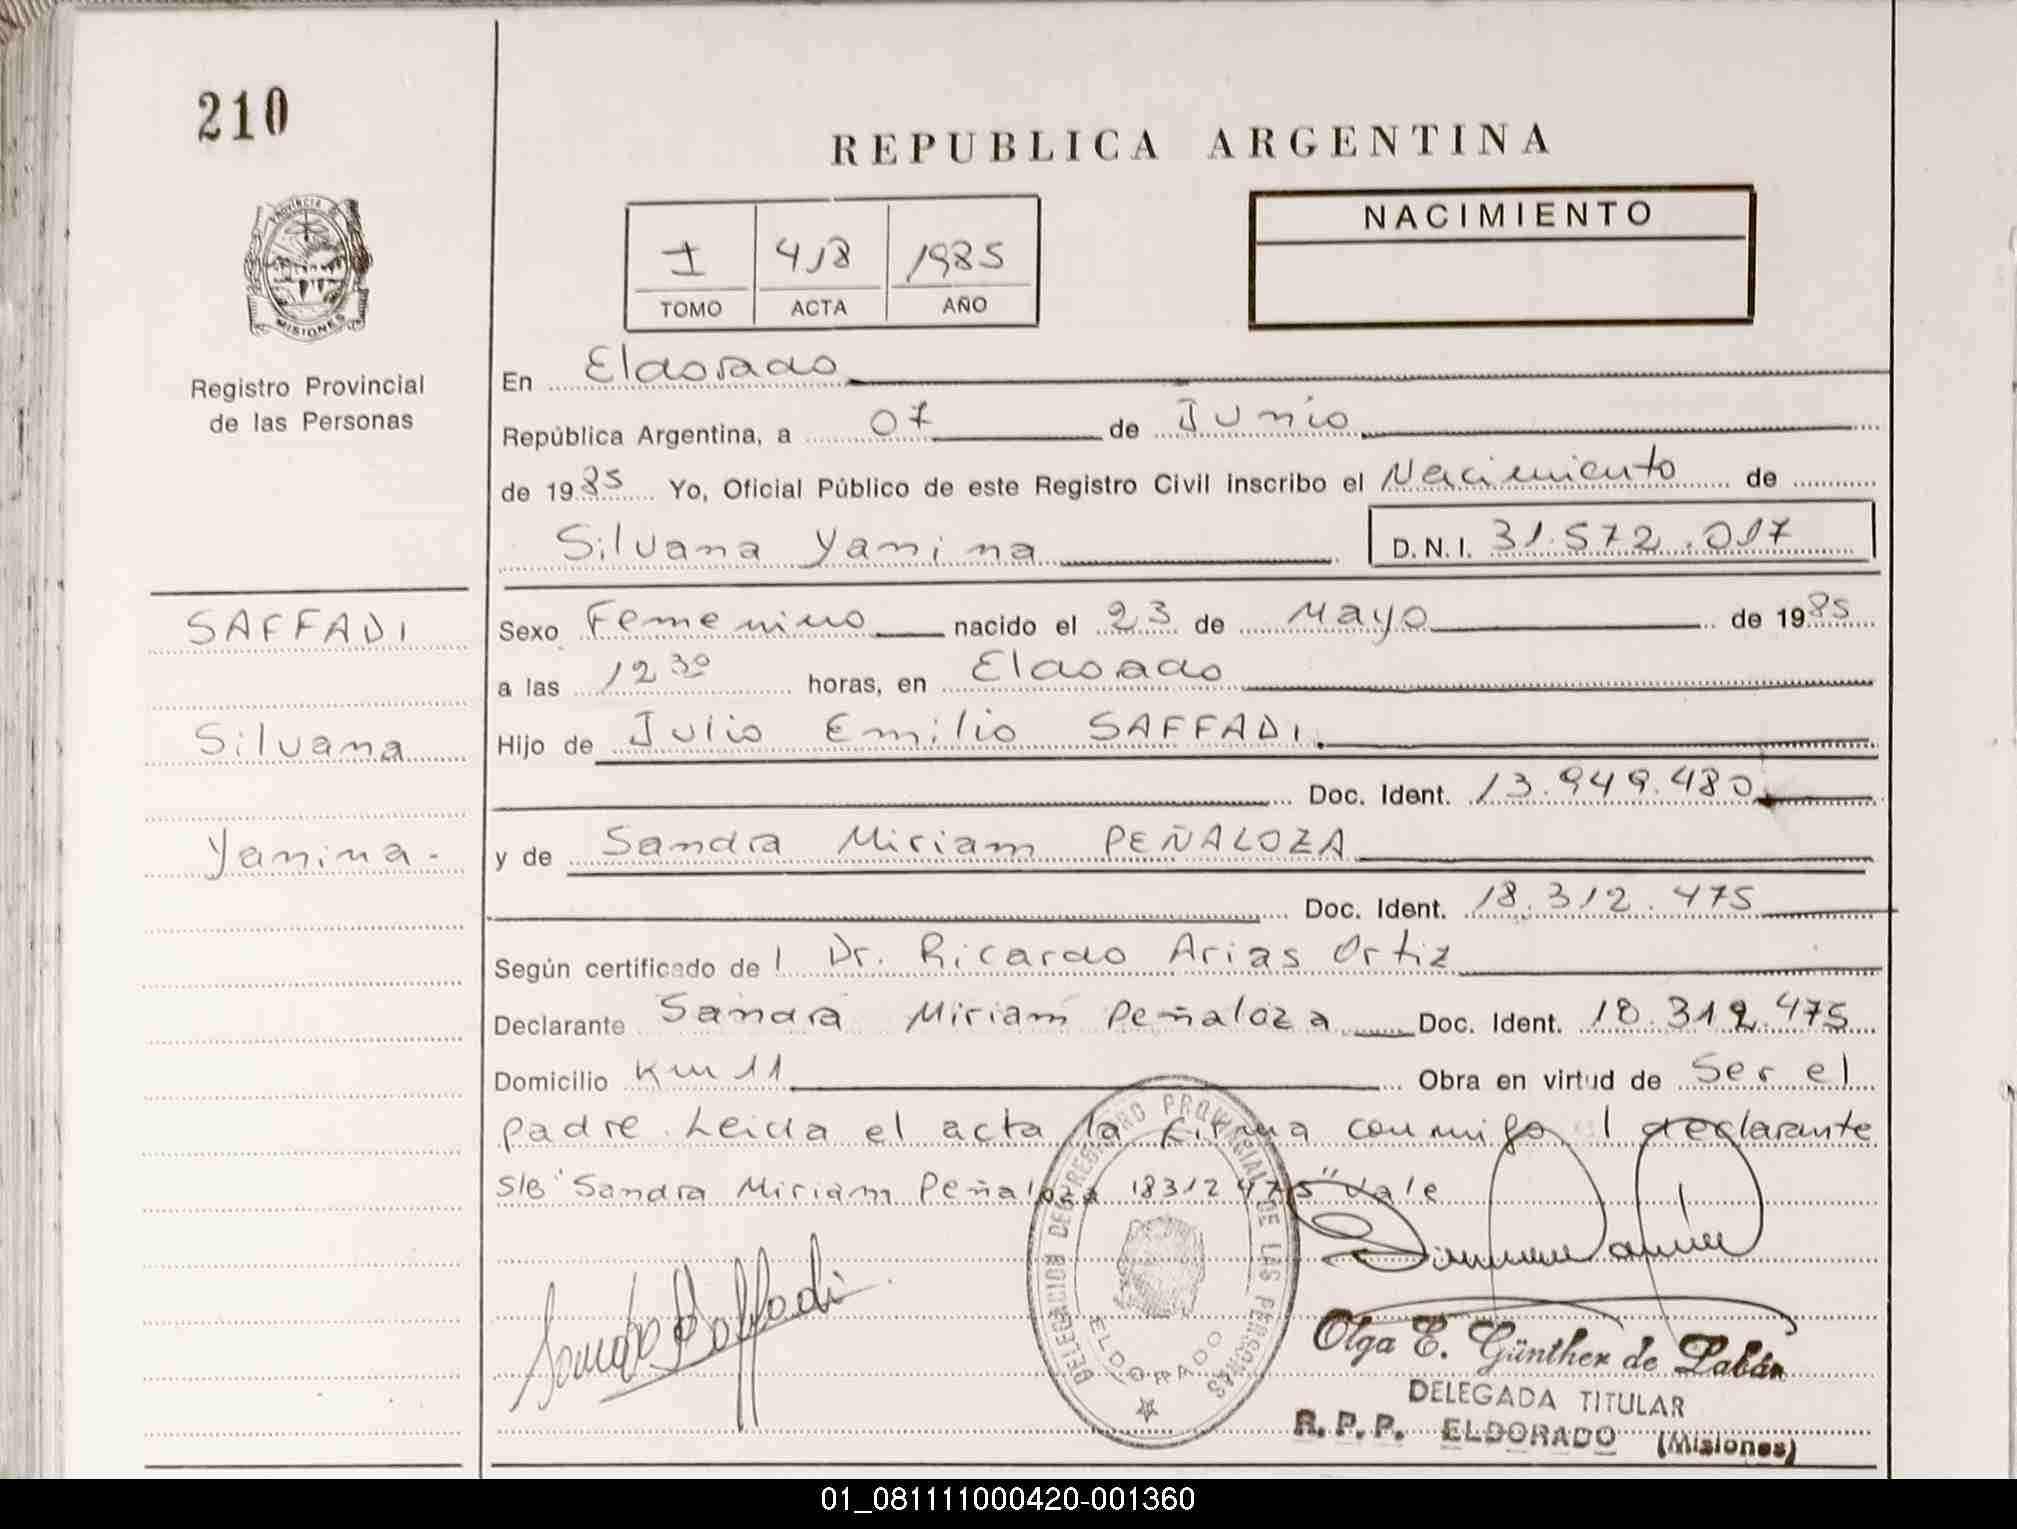 210
REPUBLICA ARGENTINA
PROVINCIA DE
MISIONES
Registro Provincial
de las Personas
I 418 1985
TOMO ACTA AÑO
NACIMIENTO
En Eldorado
República Argentina, a 07 de Junio
de 1985 Yo, Oficial Público de este Registro Civil inscribo el Nacimiento de
Silvana Yanina D.N.I. 31.572.017
SAFFADI
Silvana
Yanina-
Sexo Femenino nacido el 23 de Mayo de 1985
a las 12 30 horas, en Eldorado
Hijo de Julio Emilio SAFFADI
Doc. Ident. 13.949.480
y de Sandra Miriam PEÑALOZA
Doc. Ident. 18.312.475
Según certificado de l Dr. Ricardo Arias Ortiz
Declarante Sandra Miriam Peñaloza Doc. Ident. 18.312.475
Domicilio Km 11 Obra en virtud de Ser el
padre. Leida el acta la firma conmigo l declarante
S/B "Sandra Miriam Peñaloza 18312475" Vale
DELEGACION DEL REGISTRO PROVINCIAL DE LAS PERSONAS
ELDORADO
Sandra P Saffadi
Olga E. Günther de Pabán
DELEGADA TITULAR
R.P.P. ELDORADO (Misiones)
01_081111000420-001360